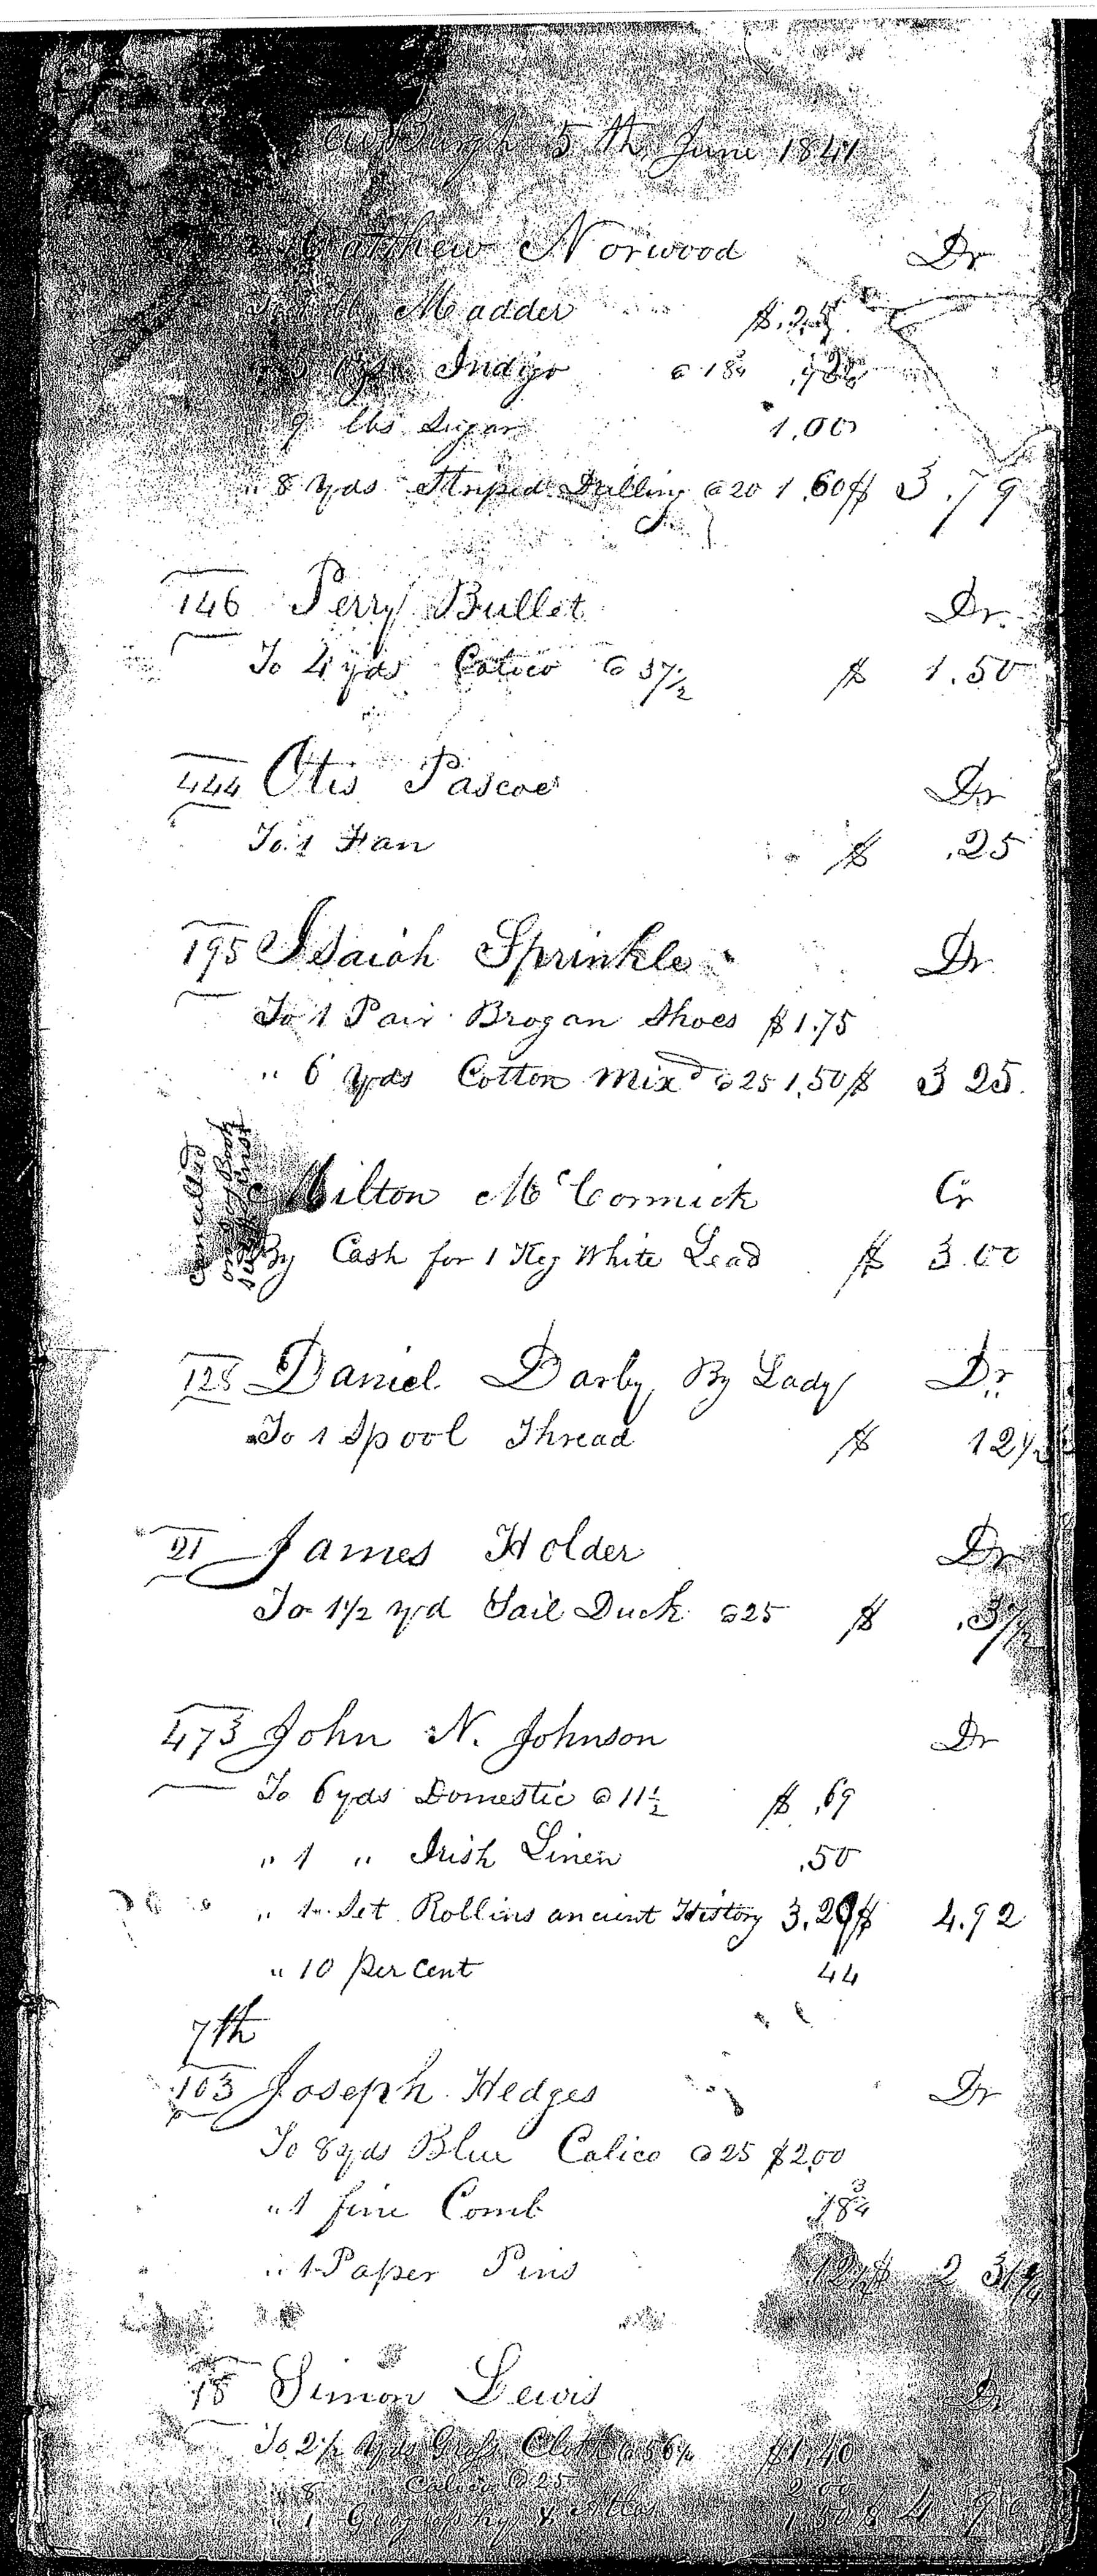 5th June 1841
Matthew Norwood Dr
Madder $.25
Indigo @ 18¾
9 lbs Sugar 1.00
" 8 Yds Striped Drilling @ 20 1.60 $ 3.79
146 Perry Bullet Dr.
To 4 yds Calico @ 37½ $ 1.50
444 Otis Pascoe Dr
To 1 Fan $ .25
195 Isaiah Sprinkle Dr
To 1 Pair Brogan Shoes $1.75
" 6 yds Cotton Mixd @ 25 1.50 $ 3 25.
Cancelled
Milton McCormick Cr
By Cash for 1 Keg White Lead $ 3.00
128 Daniel Darby By Lady Dr
To 1 Spool Thread $ 12½
21 James Holder Dr
To 1½ yd Sail Duck @ 25 $ .37½
473 John N. Johnson Dr
To 6 yds Domestic @ 11½ $ .69
" 1 " Irish Linen .50
" 1 Set Rollins ancient History 3.29 $ 4.92
" 10 per cent 44
7th
103 Joseph Hedges Dr
To 8 yds Blue Calico @ 25 $2.00
" 1 fine Comb .18¾
" 1 Paper Pins 12½ $ 2 31¼
18 Simon Lewis Dr
To 2½ Yds Cloth @ 56¼ $1.40
" 8 Calico @ 25 2.00
" 1 Geography & Atlas 1.50 $ 4 90